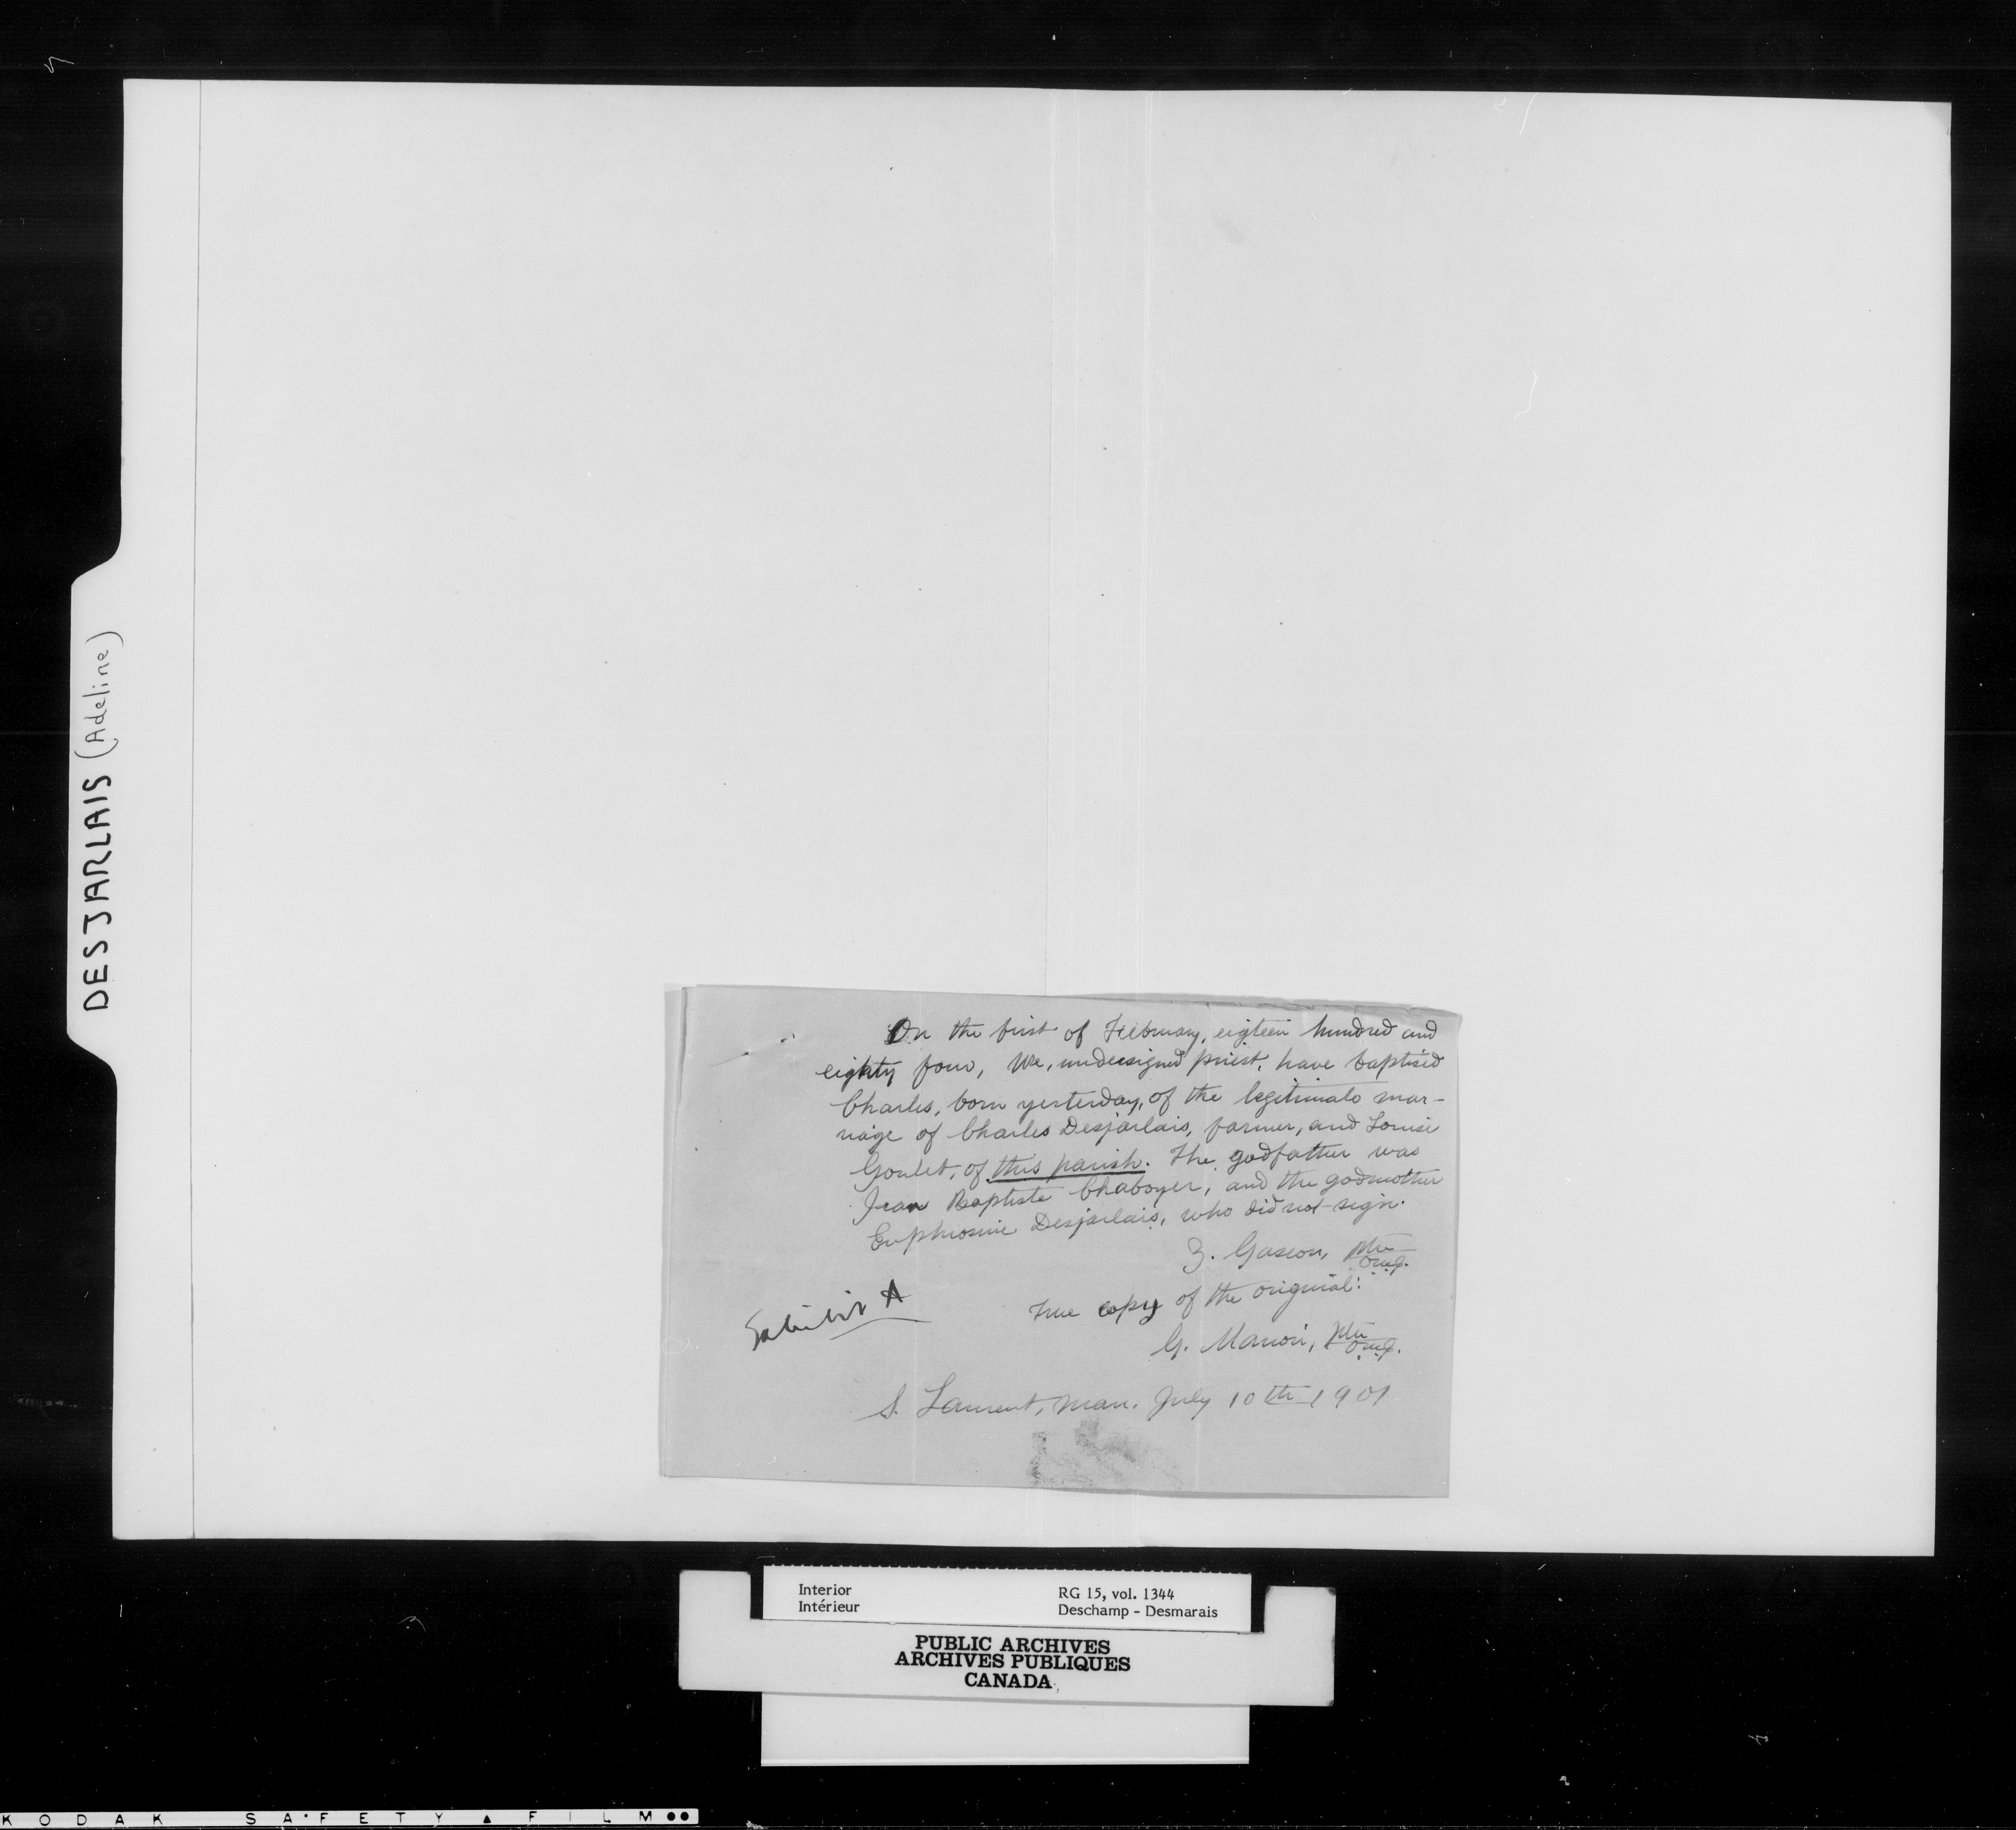 DESJARLAIS (Adeline)
On the first of February, eigteen hundred and
eighty four, We, undersigned priest, have baptised
Charles, born yesterday, of the legitimate mar-
riage of Charles Desjarlais, farmer, and Louise
Goulet, of this parish. The godfather was
Jean Baptiste Chaboyer, and the godmother
Euphrosine Desjarlais, who did not sign.
Z. Gascon, ptre
o.m.i.
True copy of the original:
Exhibit A
G. Marion, ptre
o.m.i.
S. Laurent, Man. July 10th 1901
Interior RG 15, vol. 1344
Intérieur Deschamp - Desmarais
PUBLIC ARCHIVES
ARCHIVES PUBLIQUES
CANADA
KODAK SAFETY FILM